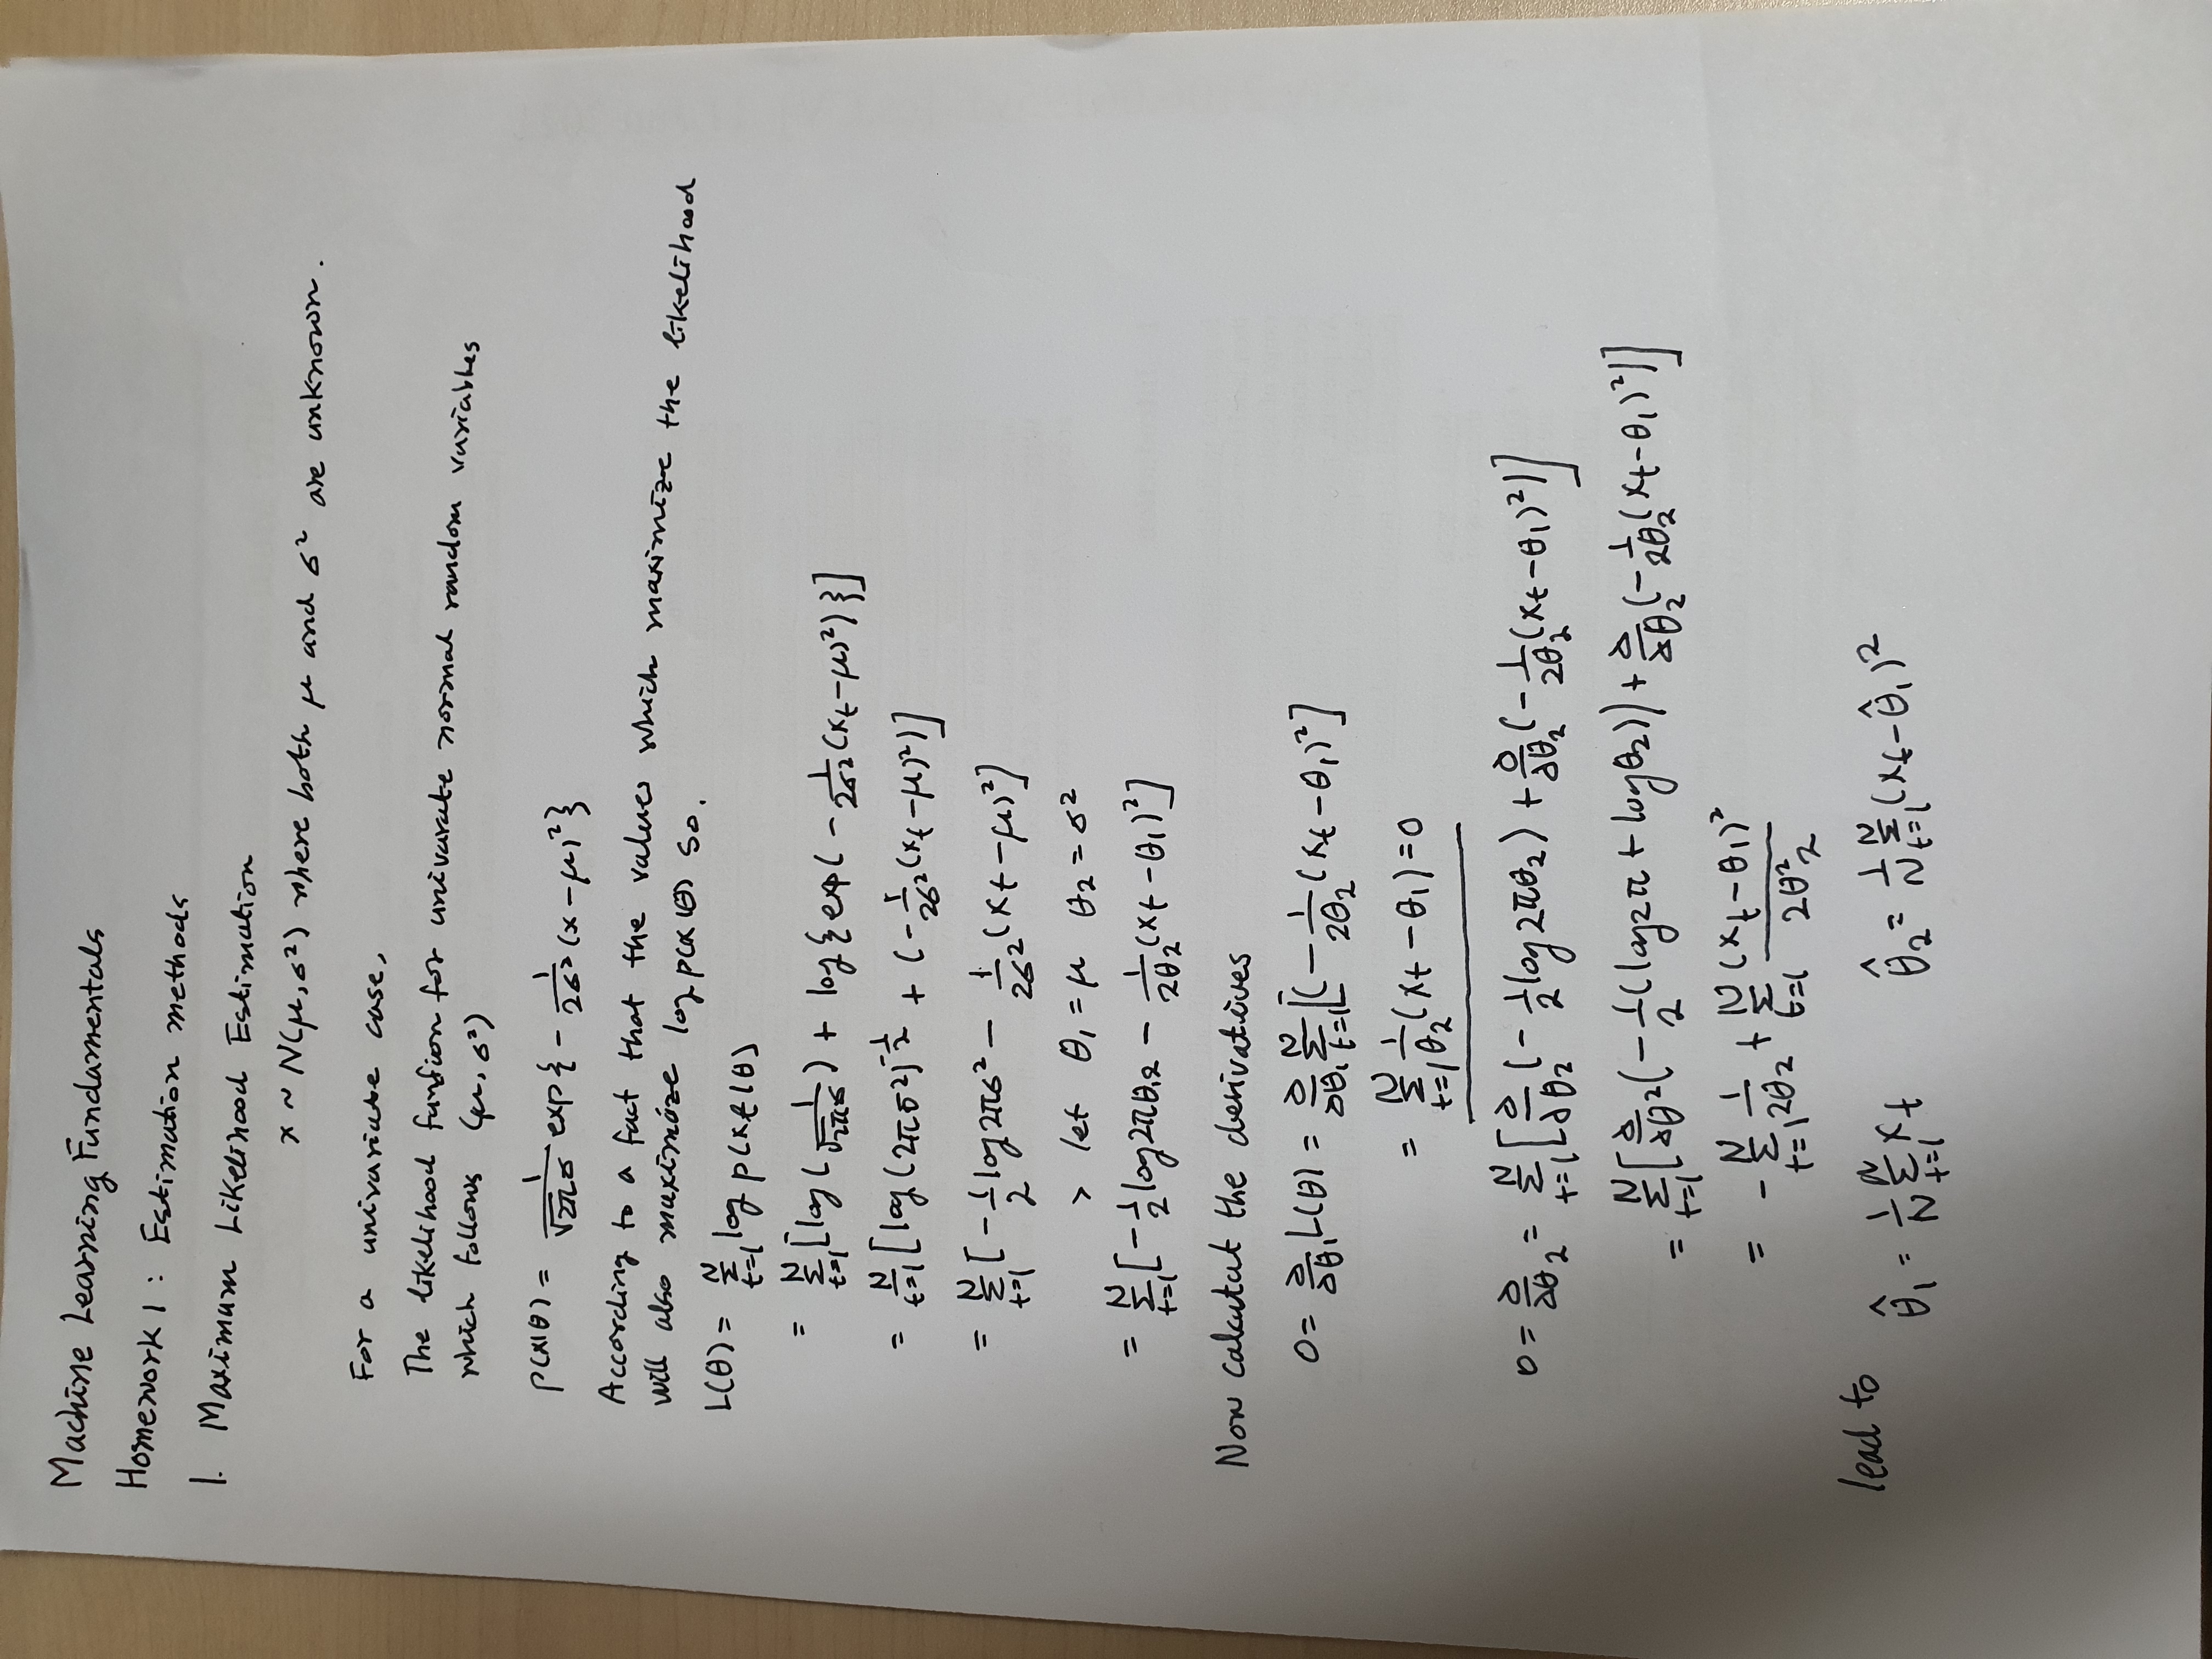 Machine Learning Fundamentals
Homework 1 : Estimation methods
1. Maximum Likelihood Estimation
x ~ N(μ, σ²) where both μ and σ² are unknown.
For a univariate case,
The likelihood funtion for univarate normal random variables
which follows (μ, σ²)
p(x|θ) = 1/(√2π σ) exp{ - 1/(2σ²) (x - μ)² }
According to a fact that the values which maximize the likelihood
will also maximize log p(x|θ) so.
L(θ) = Σ_{t=1}^{N} log p(x_t|θ)
= Σ_{t=1}^{N} [log(1/(√2π σ)) + log{exp(- 1/(2σ²) (x_t - μ)²)}]
= Σ_{t=1}^{N} [log(2πσ²)^{-1/2} + (- 1/(2σ²) (x_t - μ)²)]
= Σ_{t=1}^{N} [- 1/2 log 2πσ² - 1/(2σ²) (x_t - μ)²]
> let θ₁ = μ θ₂ = σ²
= Σ_{t=1}^{N} [- 1/2 log 2πθ₂ - 1/(2θ₂) (x_t - θ₁)²]
Now calcutat the derivatives
0 = ∂/∂θ₁ L(θ) = ∂/∂θ₁ Σ_{t=1}^{N} [(- 1/(2θ₂) (x_t - θ₁)²]
= Σ_{t=1}^{N} 1/θ₂ (x_t - θ₁) = 0
0 = ∂/∂θ₂ = Σ_{t=1}^{N} [∂/∂θ₂ (- 1/2 log 2πθ₂) + ∂/∂θ₂ (- 1/(2θ₂) (x_t - θ₁)²)]
= Σ_{t=1}^{N} [∂/∂θ² (- 1/2 (log 2π + log θ₂)) + ∂/∂θ₂ (- 1/(2θ₂) (x_t - θ₁)²)]
= - Σ_{t=1}^{N} 1/(2θ₂) + Σ_{t=1}^{N} (x_t - θ₁)²/(2θ₂²)
lead to θ̂₁ = 1/N Σ_{t=1}^{N} x_t θ̂₂ = 1/N Σ_{t=1}^{N} (x_t - θ̂₁)²